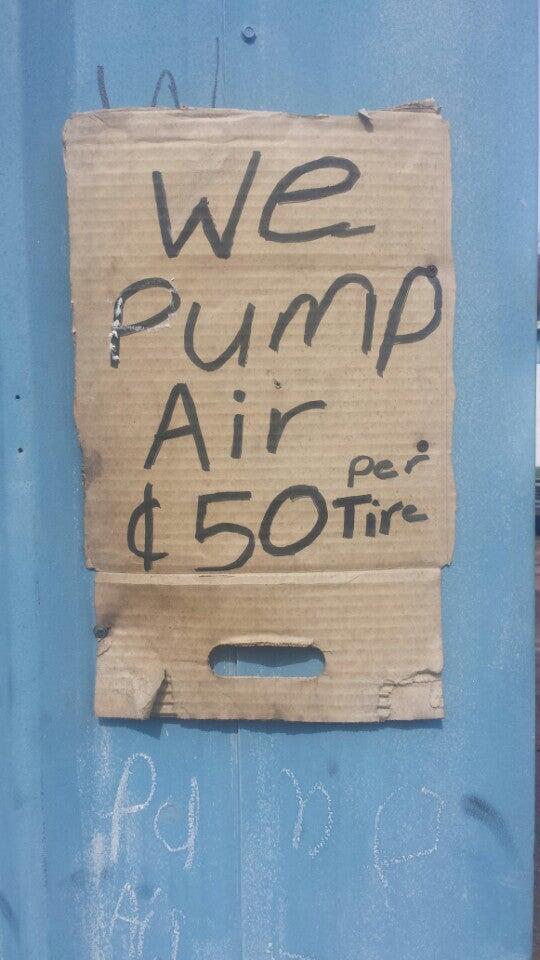 We
Pump
Air
¢50 per Tire